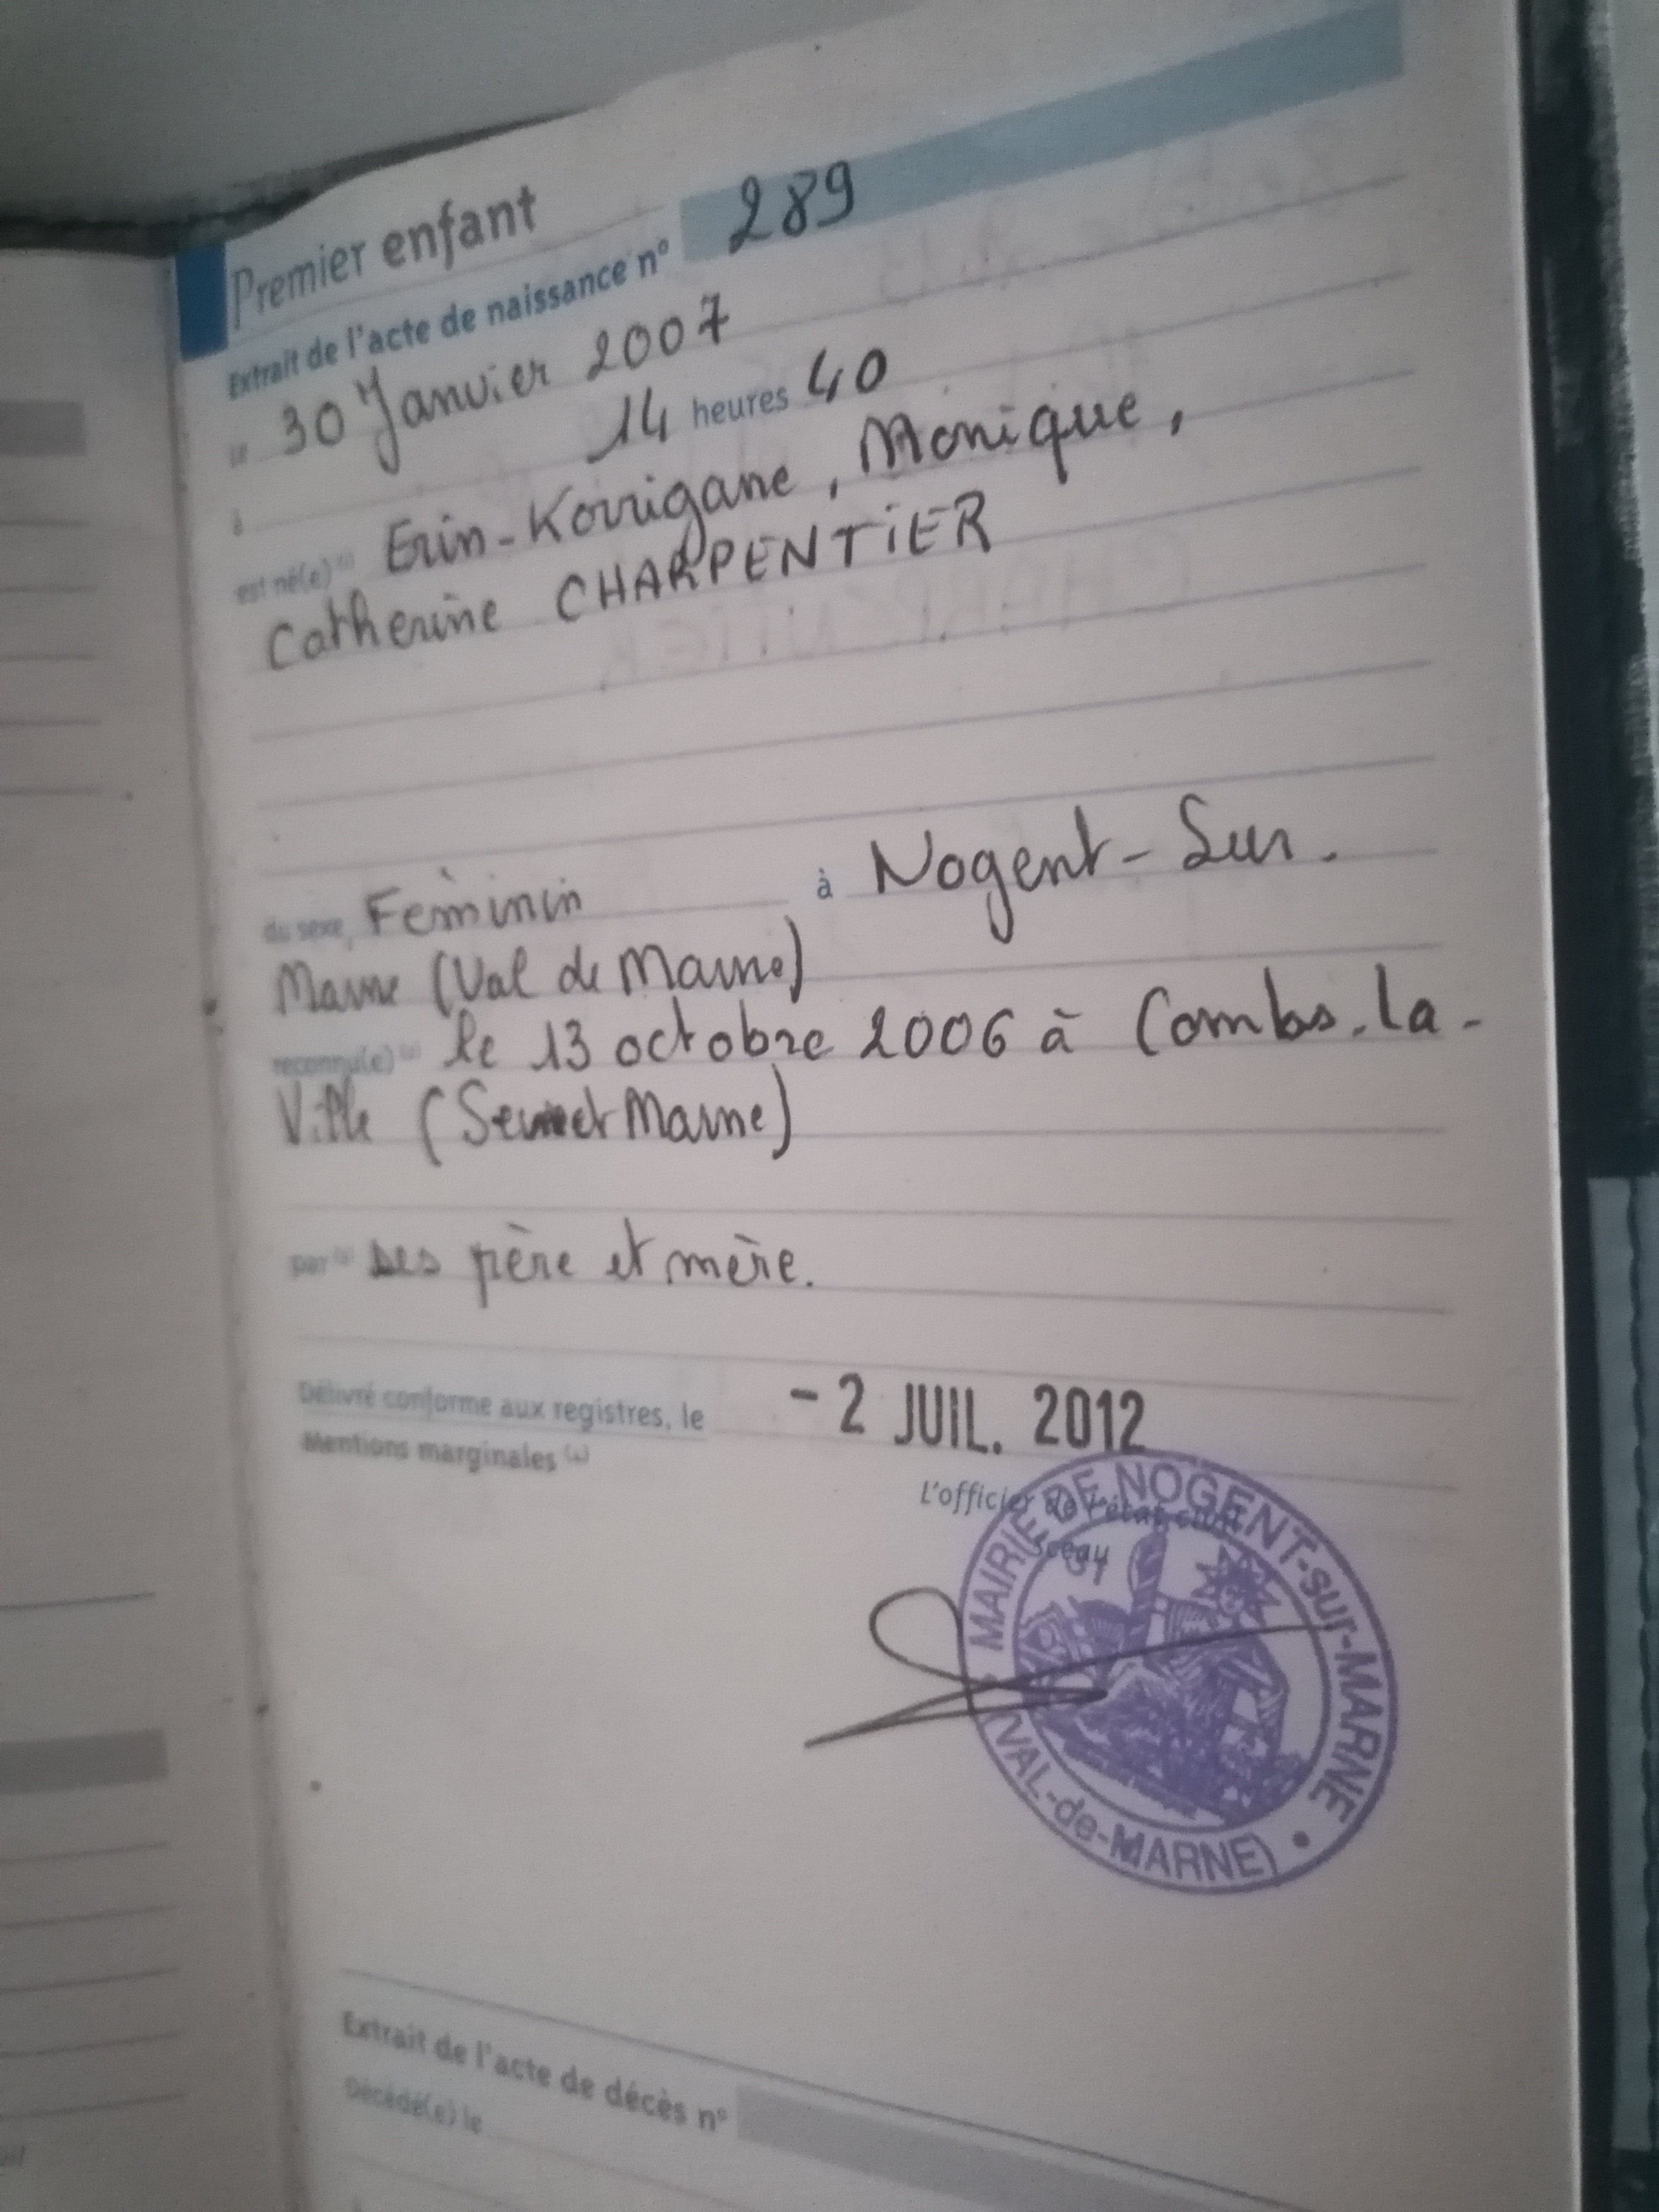 Premier enfant
Extrait de l'acte de naissance n° 289
le 30 Janvier 2007
à 14 heures 40
est né(e) Erin-Korrigane, Monique,
Catherine CHARPENTIER
du sexe Feminin à Nogent-Sur.
Marne (Val de Marne)
reconnu(e) le 13 octobre 2006 à Combs-la-
Ville (Seine et Marne)
par ses père et mère.
Délivré conforme aux registres, le - 2 JUIL. 2012
Mentions marginales
L'officier de l'état civil
Sceau
MAIRIE DE NOGENT-sur-MARNE
(VAL-de-MARNE)
Extrait de l'acte de décès n°
Décédé(e) le